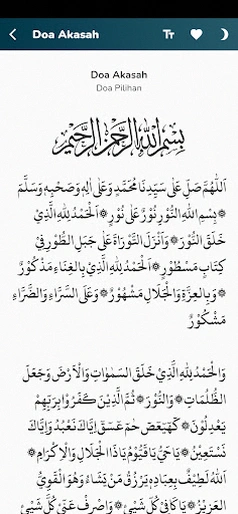 Doa Akasah
Doa Akasah
Doa Pilihan
بِسْمِ اللهِ الرَّحْمٰنِ الرَّحِيْمِ
اَللّٰهُمَّ صَلِّ عَلٰى سَيِّدِنَا مُحَمَّدٍ وَعَلٰى اٰلِهٖ وَصَحْبِهٖ وَسَلَّمَ
۞ بِسْمِ اللهِ النُّوْرِ نُوْرٌ عَلٰى نُوْرٍ ۞ اَلْحَمْدُ لِلّٰهِ الَّذِيْ
خَلَقَ النُّوْرَ ۞ وَاَنْزَلَ التَّوْرَاةَ عَلٰى جَبَلِ الطُّوْرِ فِيْ
كِتَابٍ مَسْطُوْرٍ ۞ اَلْحَمْدُ لِلّٰهِ الَّذِيْ بِالْغِنَاءِ مَذْكُوْرٌ
۞ وَبِالْعِزَّةِ وَالْجَلَالِ مَشْهُوْرٌ ۞ وَعَلَى السَّرَّاءِ وَالضَّرَّاءِ
مَشْكُوْرٌ
وَالْحَمْدُ لِلّٰهِ الَّذِيْ خَلَقَ السَّمٰوَاتِ وَالْاَرْضَ وَجَعَلَ
الظُّلُمَاتِ ۞ وَالنُّوْرَ ۞ ثُمَّ الَّذِيْنَ كَفَرُوْا بِرَبِّهِمْ
يَعْدِلُوْنَ ۞ كٓهٰيٰعٓصٓ حٰمٓ عٓسٓقٓ اِيَّاكَ نَعْبُدُ وَاِيَّاكَ
نَسْتَعِيْنُ ۞ يَا حَيُّ يَا قَيُّوْمُ يَا ذَا الْجَلَالِ وَالْاِكْرَامِ ۞
اَللهُ لَطِيْفٌ بِعِبَادِهٖ يَرْزُقُ مَنْ يَشَاءُ وَهُوَ الْقَوِيُّ
الْعَزِيْزُ ۞ يَا كَافِيْ كُلَّ شَيْئٍ ۞ وَاصْرِفْ عَنِّيْ كُلَّ شَيْئٍ